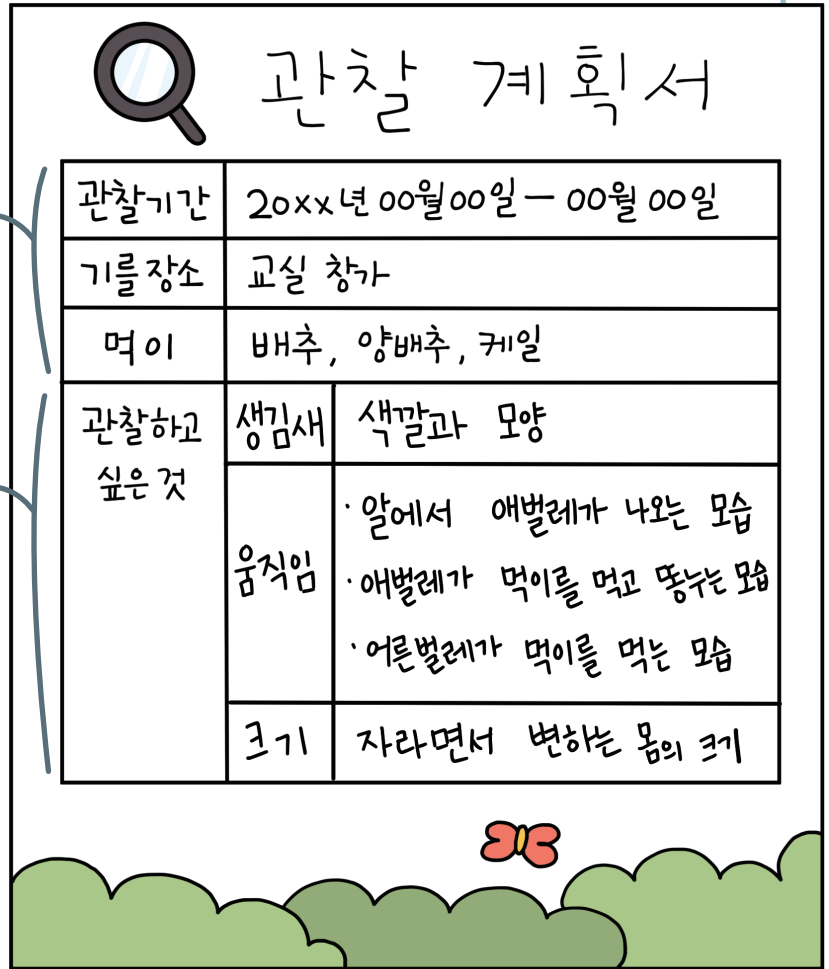 관찰 계획서
관찰기간 20xx년 00월 00일 - 00월 00일
기를 장소 교실 창가
먹이 배추, 양배추, 케일
관찰하고
싶은 것
생김새 색깔과 모양
움직임
· 알에서 애벌레가 나오는 모습
· 애벌레가 먹이를 먹고 똥누는 모습
· 어른벌레가 먹이를 먹는 모습
크기 자라면서 변하는 몸의 크기